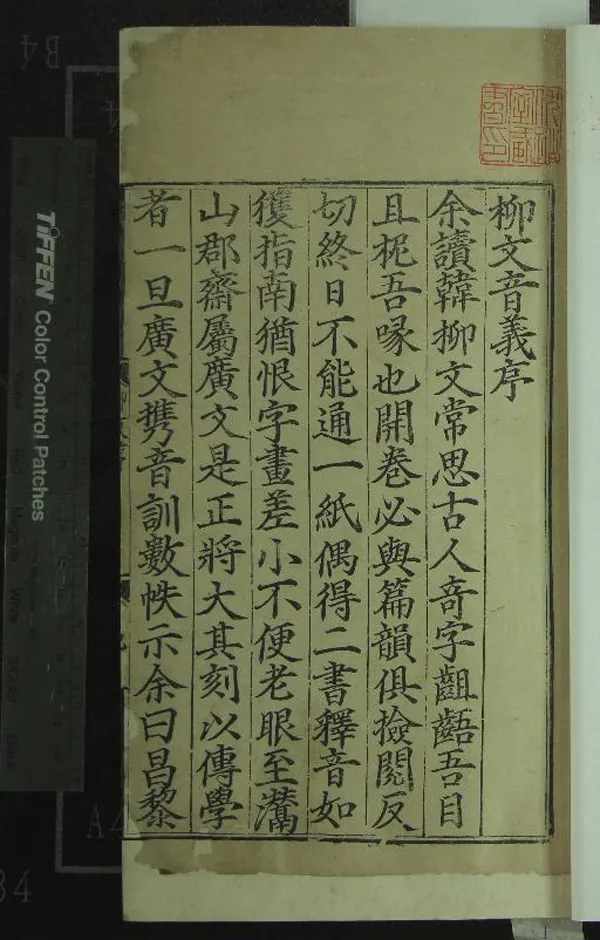 柳文音義序
余讀韓柳文常思古人竒字齟齬吾目
且梔吾喙也開卷必與篇韻俱撿閱反
切終日不能通一紙偶得二書釋音如
獲指南猶恨字畫差小不便老眼至灊
山郡齋屬廣文是正將大其刻以傳學
者一旦廣文携音訓數帙示余曰昌黎
TIFFEN Color Control Patches
B4
A4